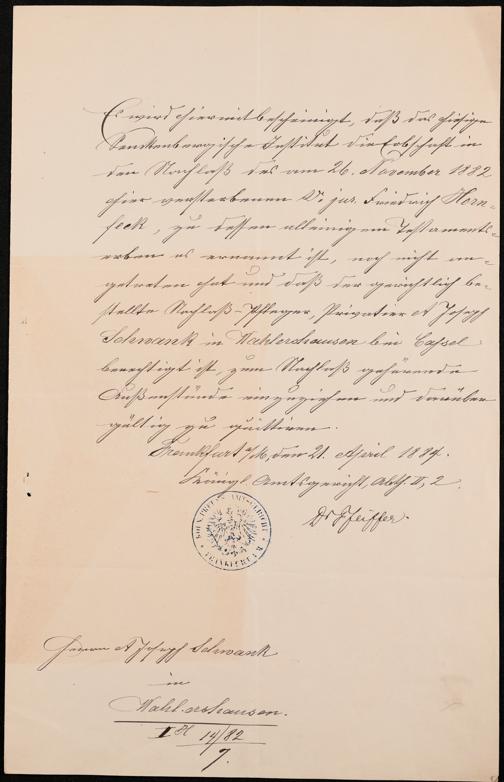 Es wird hiermit bescheinigt, daß das hiesige
Senckenbergische Institut die Erbschaft in
den Nachlaß des am 26. November 1882
hier verstorbenen Dr. jur. Friedrich Horn-
feck, zu dessen alleinigem Testaments-
erben es ernannt ist, noch nicht an-
getreten hat und daß der gerichtlich be-
stellte Nachlaß-Pfleger, Privatier A Joseph
Schwank in Wahlershausen bei Cassel
berechtigt ist, zum Nachlaß gehörende
Außenstände einzuziehen und darüber
gültig zu quittiren.
Frankfurt a/M, den 21. April 1884.
Königl. Amtsgericht, Abth. II, 2.
Dr Pfeiffer.
KÖN. PREUSS. AMTSGERICHT
FRANKFURT A. M.
Herrn A Joseph Schwank
in
Wahlershausen.
14/82
7.